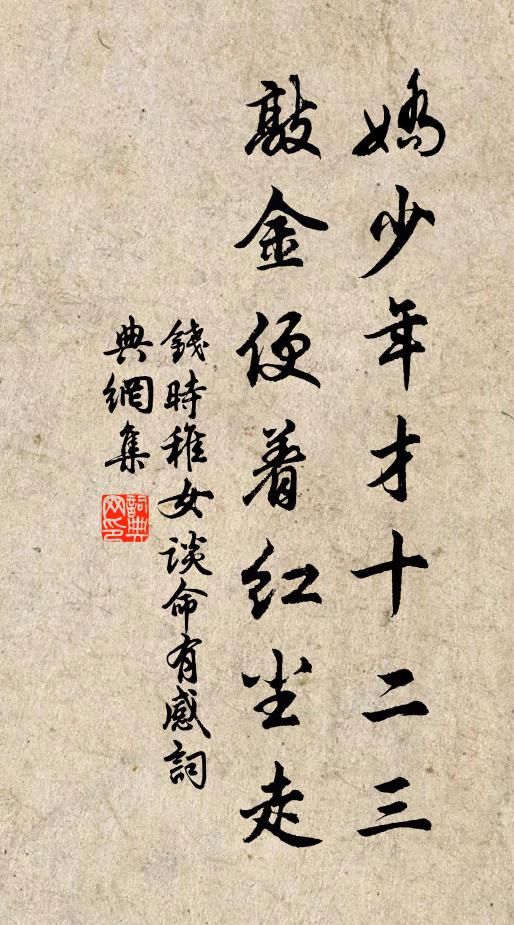 嬌少年才十二三
敲金便着红尘走
錢時稚女谈命有感詞
典網集
詞典網印